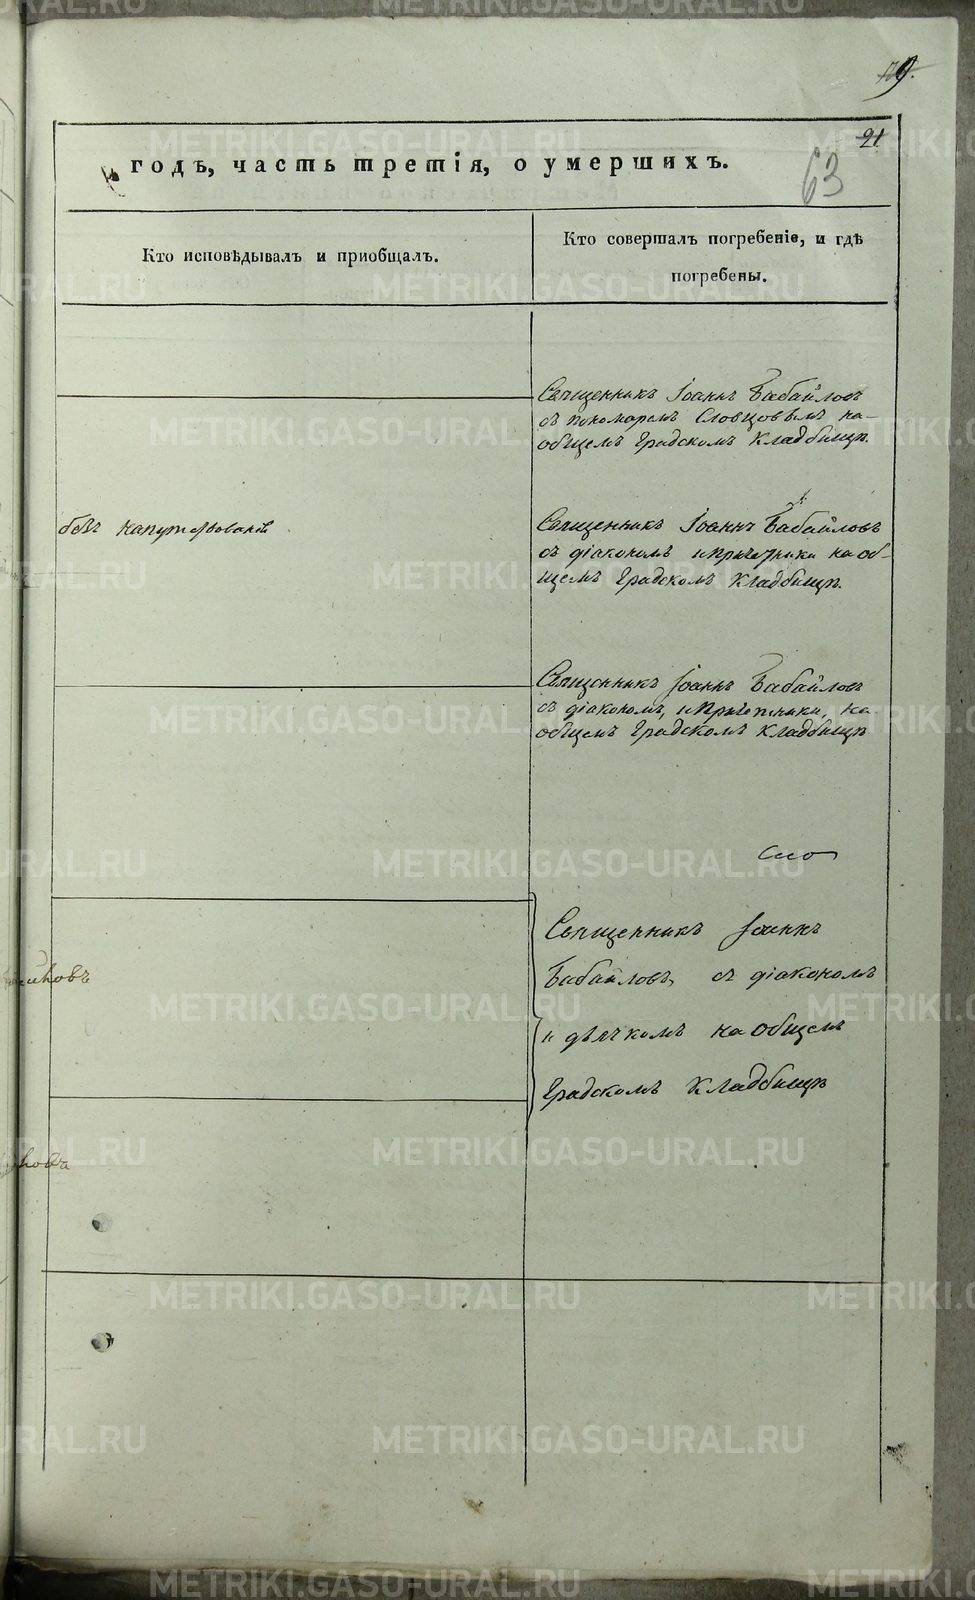 21
63
годъ, часть третія, о умершихъ.
Кто исповѣдывалъ и пріобщалъ.
Кто совершалъ погребеніе, и гдѣ
погребены.
Священникъ Іоаннъ Бабайловъ
съ пономаремъ Словцовымъ на
общемъ Градскомъ Кладбищѣ.
безъ напутствованія
Священникъ Іоаннъ Бабайловъ
съ діакономъ и причетники на об-
щемъ Градскомъ Кладбищѣ.
Священникъ Іоаннъ Бабайловъ
съ діакономъ, и причетники, на
общемъ Градскомъ Кладбищѣ
Священникъ Іоаннъ
Бабайловъ, съ діакономъ
и дьячкомъ на общемъ
Градскомъ Кладбищѣ
METRIKI.GASO-URAL.RU